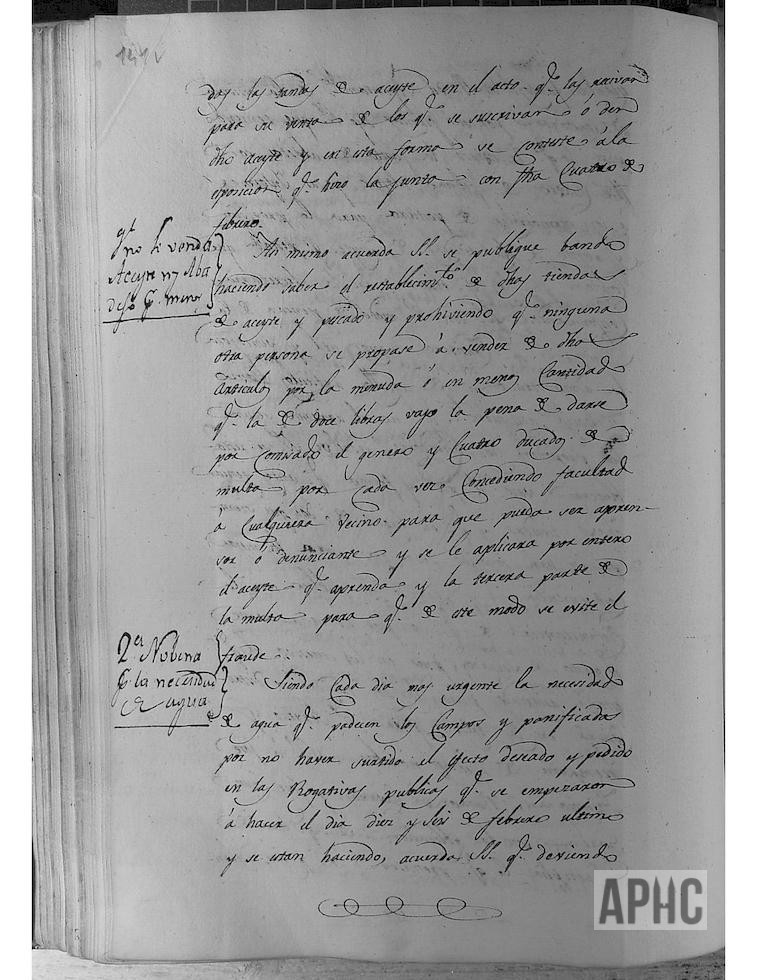 141v
das las tandas de aceyte en el acto q.e las recivan
para su venta de los q.e se suscrivan ó den
dho aceyte y en esta forma se conteste á la
esposicion q.e hizo la junta con fha Cuatro de
febrero.
q.e no se venda
Aceyte ny Aba
dejo p.r menor
Asi mismo acuerda SS. se publique bando
haciendo saber el restablecim.to de dhas tiendas
de aceyte y pescado y prohiviendo q.e ninguna
otra persona se propase á vender de dhos
Articulos por la menuda ó en menos Cantidad
q.e la de doce libras vajo la pena de darse
por comisado el genero y Cuatro ducados de
multa por cada vez Concediendo facultad
á Cualquiera Vecino para que pueda ser apren-
sor ó denunciante y se le aplicara por entero
el aceyte q.e aprenda y la tercera parte de
la multa para q.e de este modo se evite el
fraude.
2.a Novena
p.r la necesidad
de agua
Siendo Cada dia mas urgente la necesidad
de agua q.e padecen los Campos y panificados
por no haver surtido el efecto deseado y pedido
en las Rogativas publicas q.e se empezaron
á hacer el dia diez y seis de febrero ultimo
y se estan haciendo, acuerda SS. q.e deviendo
APHC